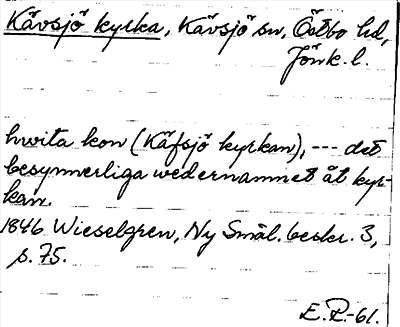 Kävsjö kyrka, Kävsjö sn, Östbo hd,
Jönk. l.
hwita kon (Käfsjö kyrkan), --- det
besynnerliga wedernamnet åt kyr-
kan.
1846 Wieselgren, Ny Smål. beskr. 3,
s. 75.
E.P.-61.